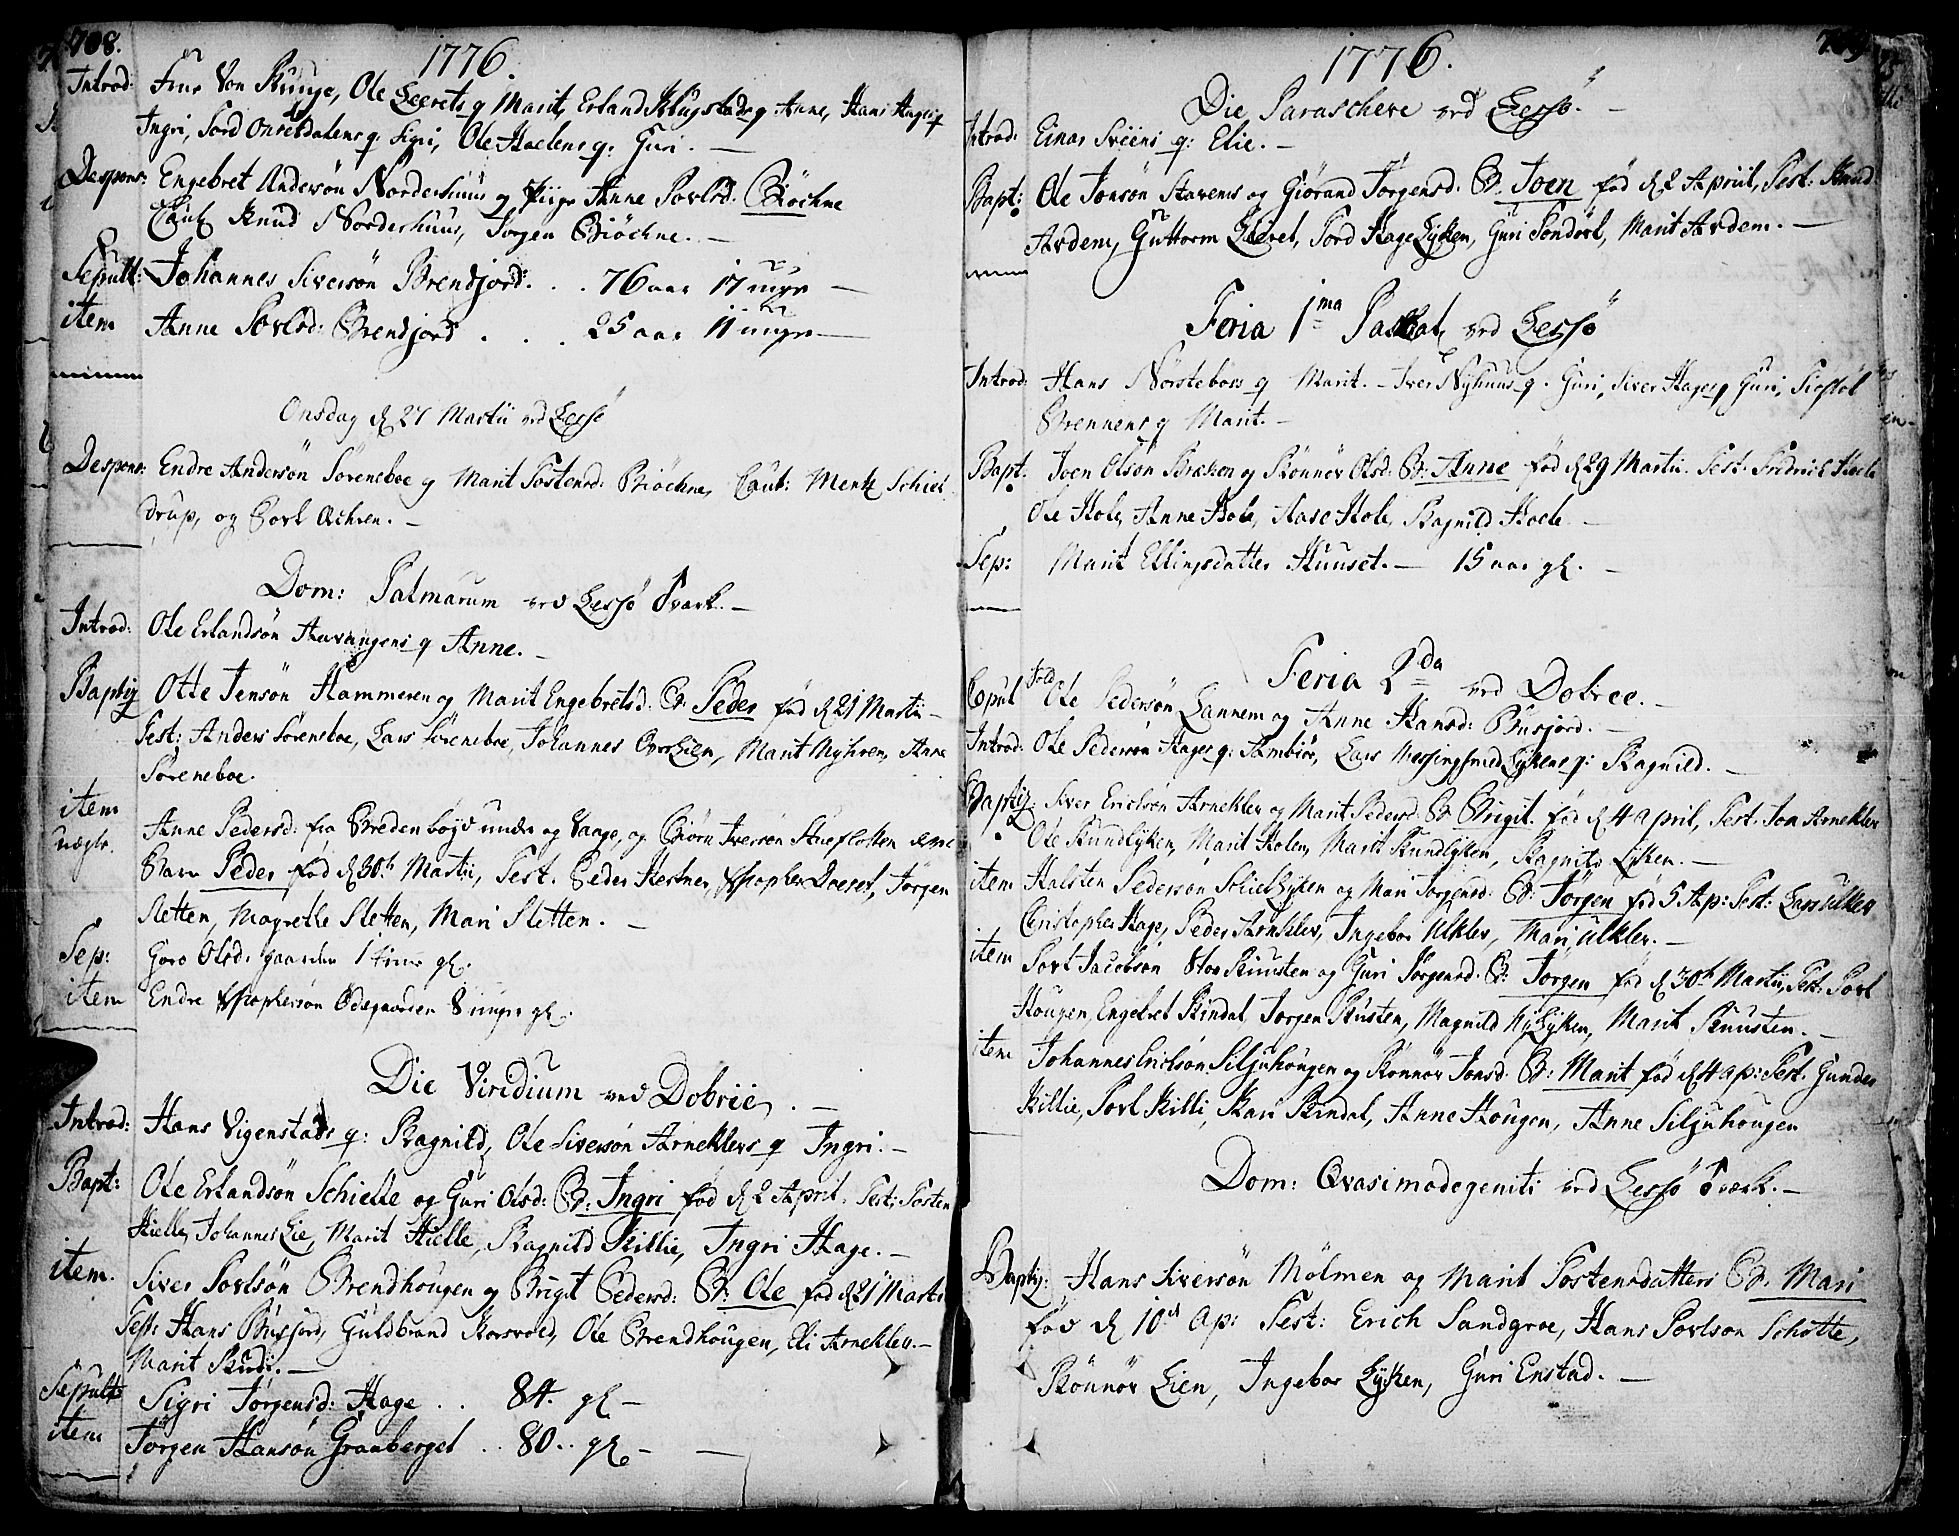 708.
1776.
Introd: Frue Von Krüge, Ole Leerets q Marit, Erland Klugstads q Anne, Hans Hages q
Ingri, Tord Onsetdalens q. Sigri, Ole Hoelens q: Guri. —
Despons: Engebret Andersön Norderhuus og Piige Anne Povlsd. Biöchne
Caut Knud Norderhuus, Jörgen Biöchne. —
Sepult: Johannes Siversön Brendjord: . . 76 aar 17 uger —
item Anne Povlsd: Brendjord . . . 25 aar 11 uger —
Onsdag d 27 Martii ved Lessö
Despons: Endre Andersön Söreneboe og Marit Tostensd: Biöchne, Caut: Mentz Schiel
drup, og Povl Achren. —
Dom: Palmarum ved Lessö Værk. —
Introd: Ole Erlandsön q Anne. —
Baptiz Otte Jensön Hammeren og Marit Engebretsd. B: Peder föd d 21 Martii —
Test: Anders Söreneboe, Lars Söreneboe, Johannes Overlien, Marit Myhren, Anne
Söreneboe.
item Anne Pedersd: fra Bredenböygd under og Vaage, og Biörn Iversön
uægte. Barn Peder föd d 30te Martii, Test. Peder Kestner, Christopher Doeset, Jörgen
Sletten, Magrethe Sletten, Mari Sletten. —
Sep: Goro Olsd: gaarden 1 time gl.
item Endre Christophersön Ödegaarden 8 uger gl.
Die Viridium ved Dobrie. —
Introd: Hans Vigenstads q: Ragnild, Ole Siversön Arneklevs q Ingri. —
Bapt: Ole Erlandsön Schielle og Guri Olsd: B: Ingri föd d 2 April. Test: Tosten
Kielle, Johannes Lie, Marit Kielle, Ragnild Killie, Ingri Hage. —
item. Siver Povlsön Brendhougen og Brigit Pedersd: B: Ole föd d 21 Martii
Test: Hans Büsjord, Guldbrand Korsvold, Ole Brendhougen, Eli Arneklev. —
Marit Rudi. —
Sepult: Sigri Jörgensd: Hage . . 84. gl —
item Jörgen Hansön Graaberget . . 80 . . gl. —
709.
1776.
Die Parascheve ved Lessö. —
Introd: Einar Sveens q: Elie. —
Bapt: Ole Jonsön Stavem og Giörand Jörgensd. B. Joen föd d 2 Apriil, Test: Knud
Avdem, Guttorm Lieret, Tord Hage Lyken, Guri Tondöel, Marit Avdem. —
Feria 1ma Paschat: ved Lessö
Introd: Hans Nörstebös q Marit. — Iver Nyhuus q. Guri, Siver Hages q Guri, Siostöl
Brennens q Marit. —
Bapt: Joen Olsön Bræken og Rönnöv Olsd: B: Anne föd d 29 Martii. Test: Fredrich Hole
Ole Hole, Anne Hole, Aase Hole, Ragnild Hoele —
Sep: Marit Ellingsdatter Huuset. — 15 aar gl. —
Feria 2da ved Dobree. —
Copul Ole Pedersön Lannem og Anne Hansd: Büsjord. —
Introd: Ole Pedersön Hages q: Ambiör, Lars Messingsmed Lykens q: Ragnild. —
Baptiz: Siver Erichsön Arneklev og Marit Pedersd B. Brigit. föd d 4 april, Test. Jon Arneklev
Ole Rundlyken, Marit Holen, Marit Rundlyken, Ragnild Lyken. —
item Halsten Pedersön Lyken og Mari Jörgensd. B: Jörgen föd 5 Ap: Test: Lars Ulklev
Christopher Hage, Peder Arneklev, Ingebor Ulklev, Mari Ulklev. —
item Povl Jacobsön Stor Ruusten og Guri Jörgensd. B: Jörgen föd d 30te Martii, Test: Povl
Hougen, Engebret Rindal, Jörgen Rusten, Magnild Nylyken, Marit Ruusten. —
item Johannes Erichsön Siljuhougen og Rönnöv Jonsd. B: Marit föd d 4 ap: Test. Gunder
Killie, Povl Killi, Kari Rindal, Anne Hougen, Anne Siljuhougen
Dom: Qvasimodogeniti ved Lessö Værk. —
Baptiz: Hans Siversön Mölmen og Marit Tostensdatters B. Mari
föd d 10de Ap: Test: Erich Sandgroe, Hans Povlson Schotte,
Rönnöv Lien, Ingebor Lyken, Guri Enstad. —